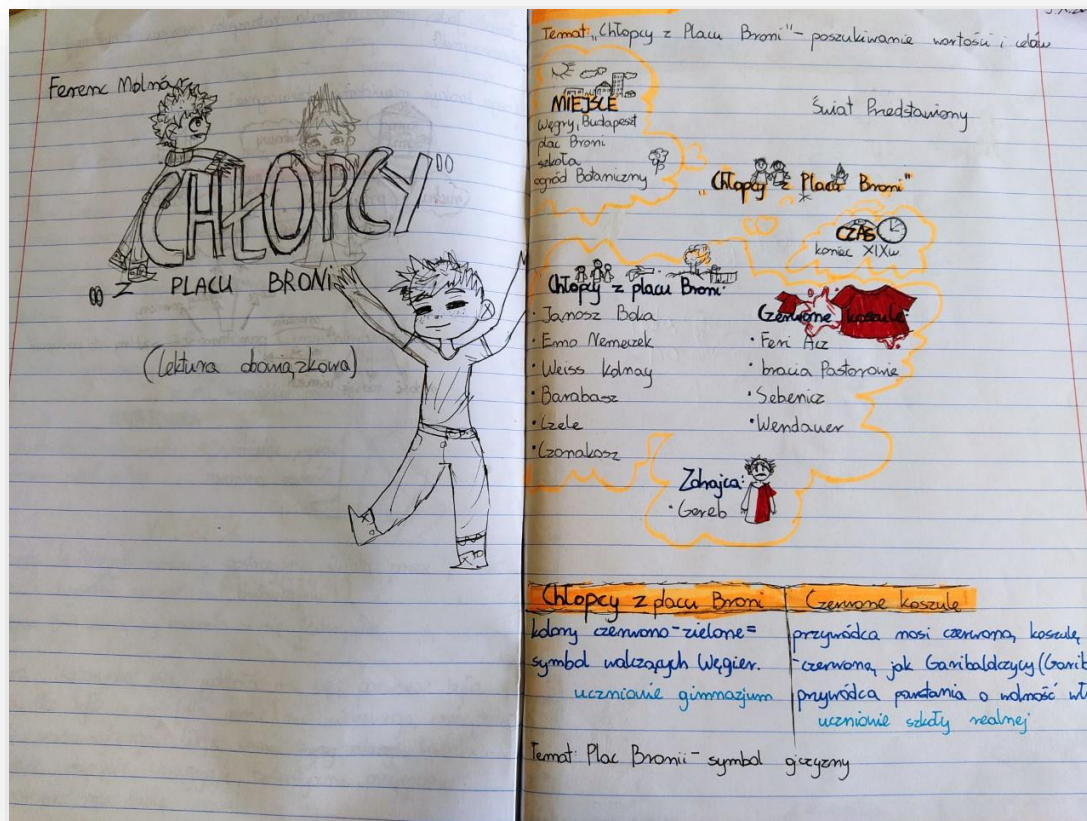 Ferenc Molnár
"CHŁOPCY
Z PLACU BRONI"
(lektura obowiązkowa)
Temat: "Chłopcy z Placu Broni" - poszukiwanie wartości i celów
MIEJSCE
Węgry, Budapeszt
plac Broni
szkoła
ogród Botaniczny
Świat Przedstawiony
"Chłopcy z Placu Broni"
CZAS
koniec XIXw
Chłopcy z placu Broni:
· Janosz Boka
· Erno Nemeczek
· Weiss Kolnay
· Barabasz
· Czele
· Czonakosz
Czerwone koszule:
· Feri Acz
· bracia Pastorowie
· Sebenicz
· Wendauer
Zdrajca:
· Gereb
Chłopcy z placu Broni
kolory czerwono-zielone =
symbol walczących Węgier.
uczniowie gimnazjum
Czerwone koszule
przywódca nosi czerwoną koszulę
-czerwoną jak Garibaldczycy (Garib
przywódca powstania o wolność wł
uczniowie szkoły realnej
Temat: Plac Bronii - symbol ojczyzny